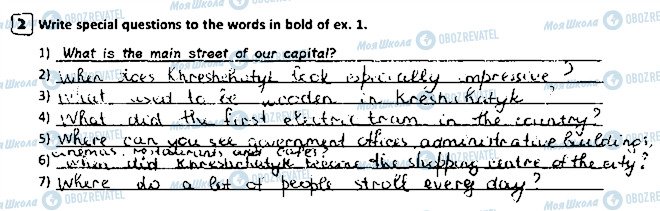 2 Write special questions to the words in bold of ex. 1.
1) What is the main street of our capital?
2) When does Khreshchatyk look especially impressive?
3) What used to be wooden in Kreshchatyk?
4) What did the first electric tram in the country?
5) Where can you see government offices, administrative buildings,
cinemas, restaurants and cafes?
6) When did Khreshchatyk become the shopping centre of the city?
7) Where do a lot of people stroll every day?
Моя Школа OBOZREVATEL